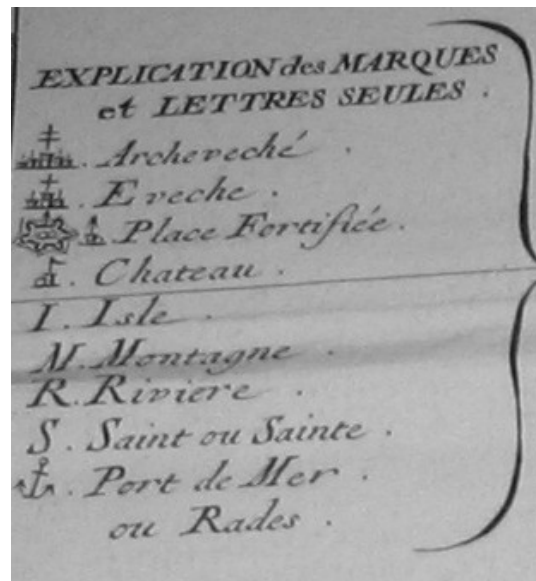 EXPLICATION des MARQUES
et LETTRES SEULES .
. Archeveché .
. Eveche .
. Place Fortifiée .
. Chateau .
I . Isle .
M . Montagne .
R . Riviere .
S . Saint ou Sainte .
. Port de Mer
ou Rades .